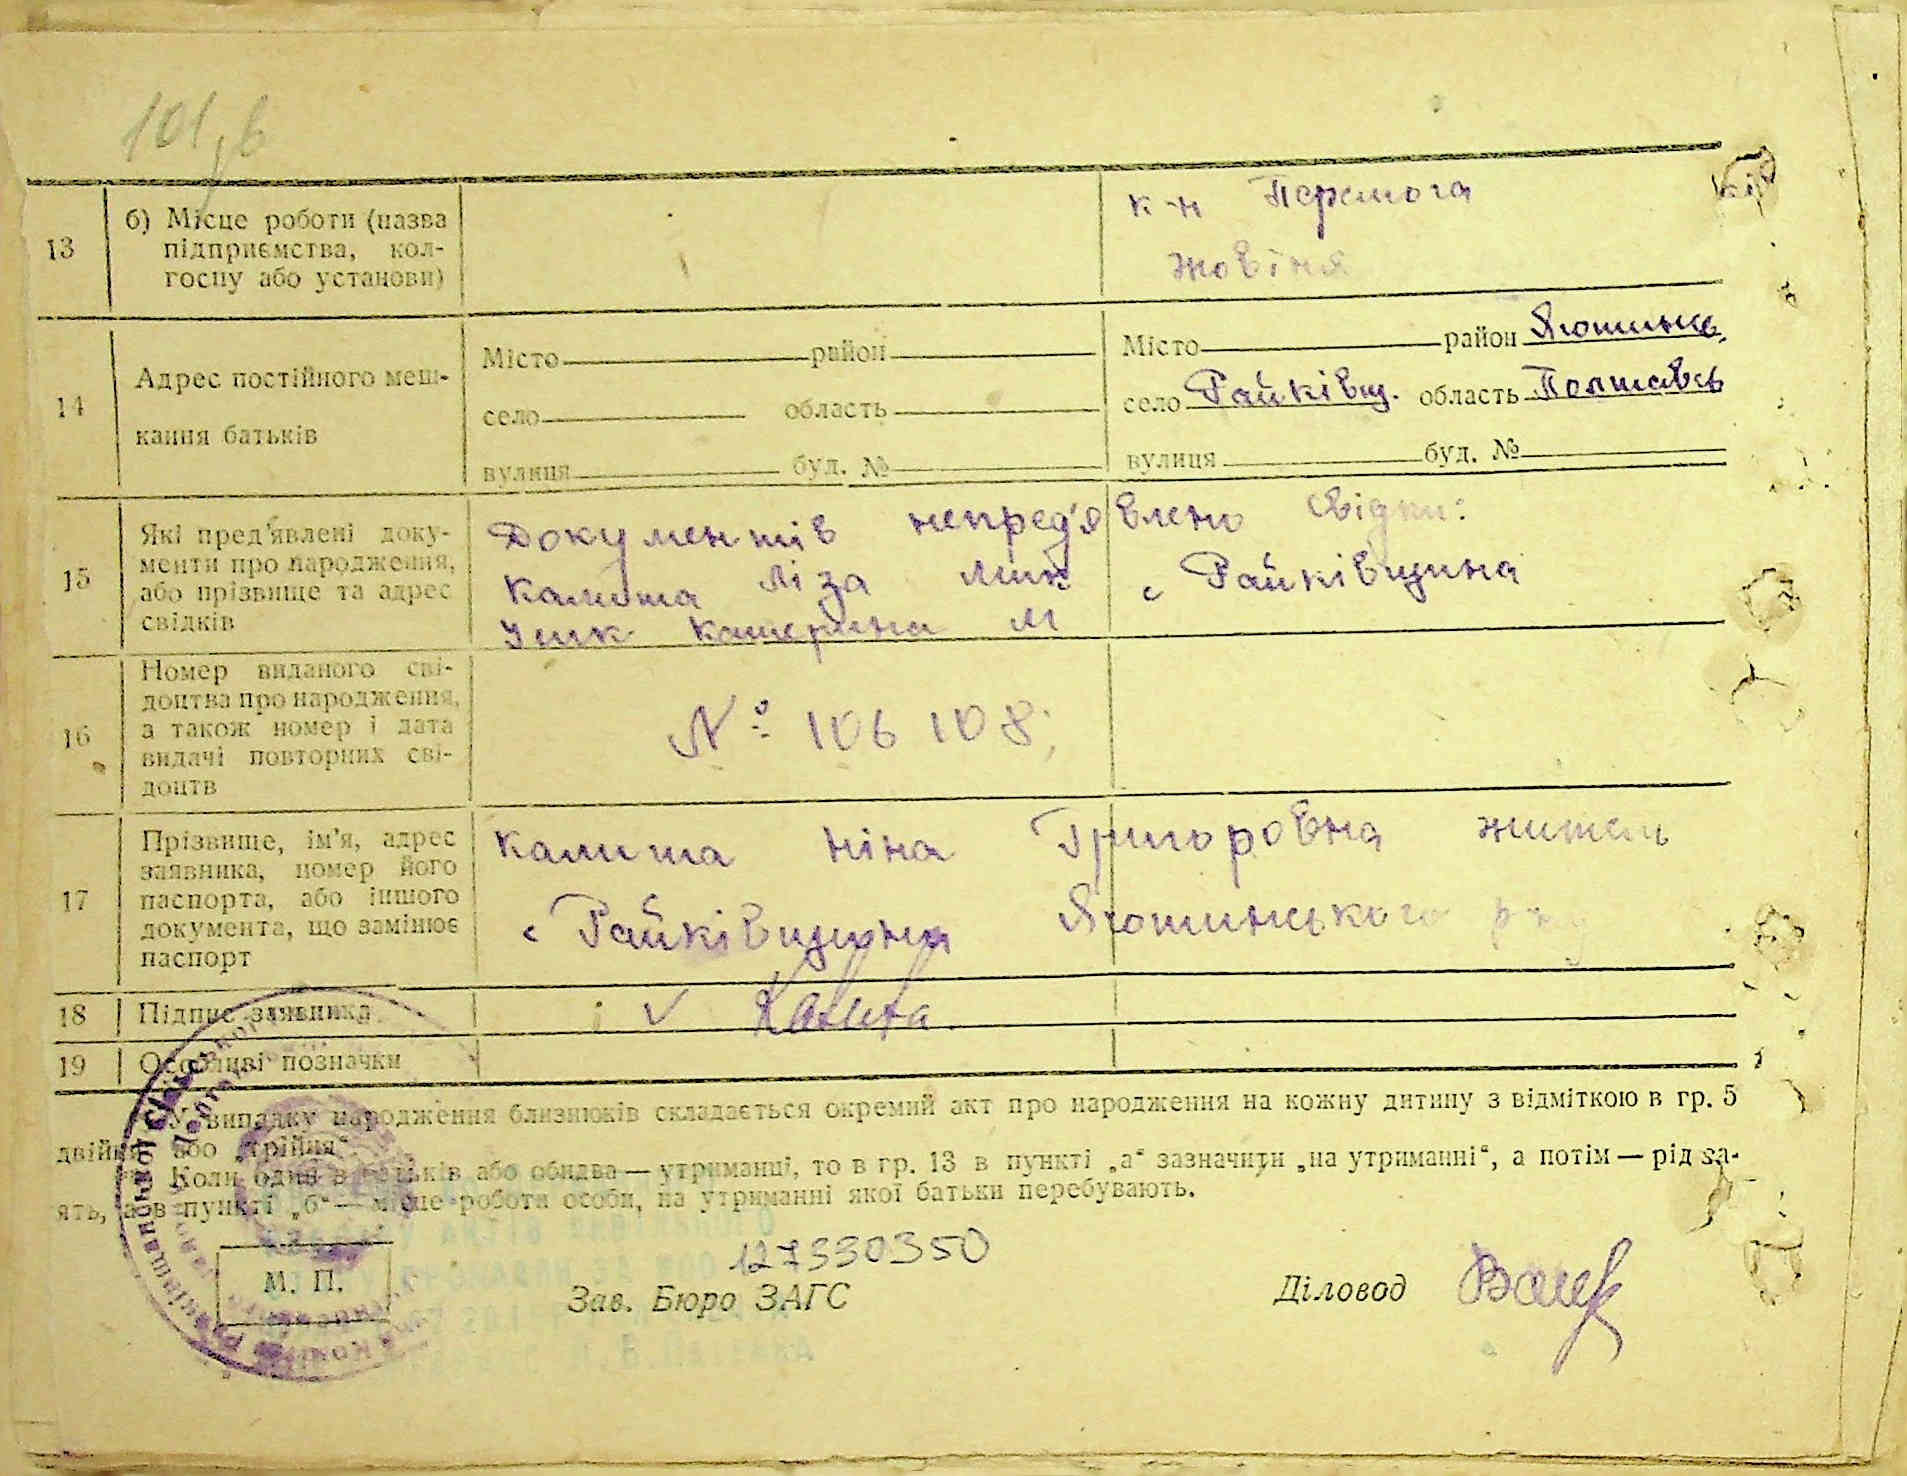 101, в
13 б) Місце роботи (назва підприємства, кол-
госпу або установи)
к-п Перемога
жовтня
14 Адрес постійного меш-
кання батьків
Місто район
село область
вулиця буд. №
Місто район Яготинс.
село Райківщ. область Полтавсь
вулиця буд. №
15 Які пред'явлені доку-
менти про народження,
або прізвище та адрес
свідків
Документів непред'явлено Свідки:
Калита Ліза Мик с Райківщина
Катерина М
16 Номер виданого сві-
доцтва про народження,
а також номер і дата
видачі повторних сві-
доцтв
№ 106108;
17 Прізвище, ім'я, адрес
заявника, номер його
паспорта, або іншого
документа, що замінює
паспорт
Калита Ніна Григоровна житель
с Райківщина Яготинського р-ну
18 Підпис заявника
v Калита.
19 Особливі позначки
У випадку народження близнюків складається окремий акт про народження на кожну дитину з відміткою в гр. 5
двійня або „трійня“
Коли один з батьків або обидва — утриманці, то в гр. 13 в пункті „а“ зазначити „на утриманні“, а потім — рід за-
ять, а в пункті „б“ — місце роботи особи, на утриманні якої батьки перебувають.
127330350
М. П.
Зав. Бюро ЗАГС
Діловод